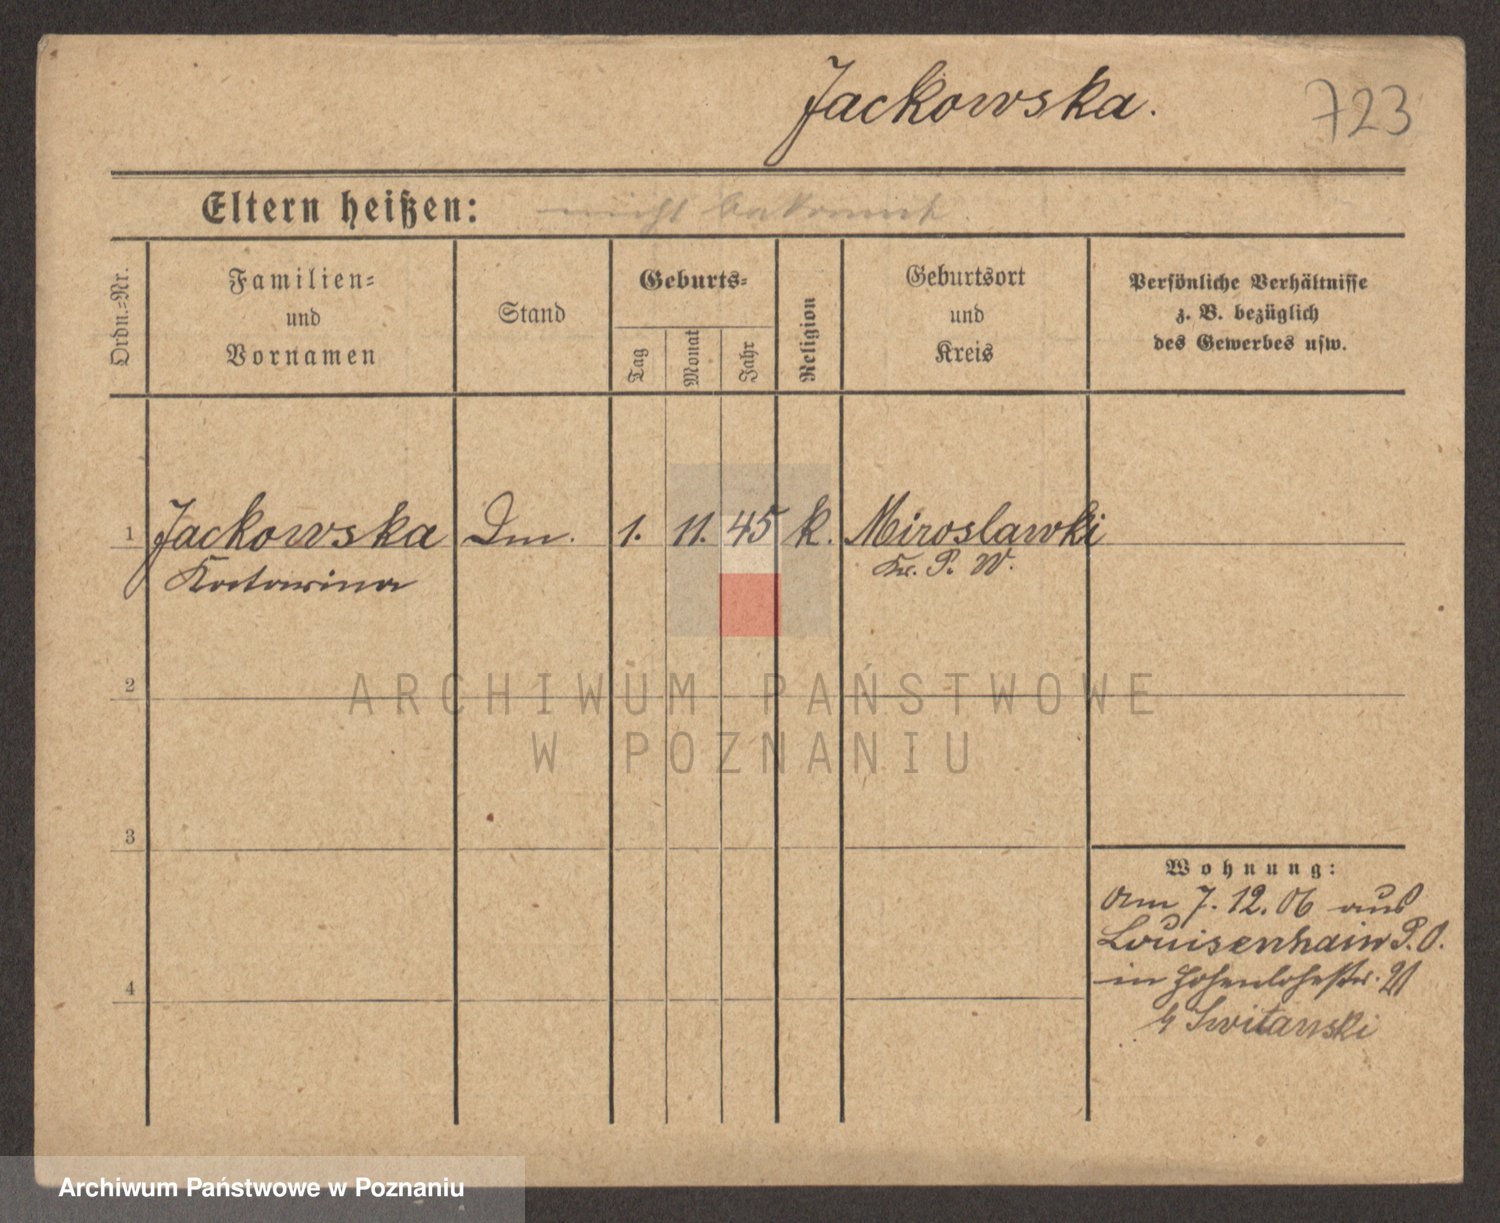 Jackowska.
723
Eltern heißen: nicht bekannt
Ordn.-Nr.
Familien-
und
Vornamen
Stand
Geburts-
Tag
Monat
Jahr
Religion
Geburtsort
und
Kreis
Persönliche Verhältnisse
z. B. bezüglich
des Gewerbes usw.
1 Jackowska 1. 11. 45 k. Miroslawki
Katarina Kr. P. W.
2
ARCHIWUM PAŃSTWOWE
W POZNANIU
3
Wohnung:
Am 7. 12. 06 aus
Louisenhain P. O.
in Hohenlohestr. 21
b Switanski
4
Archiwum Państwowe w Poznaniu